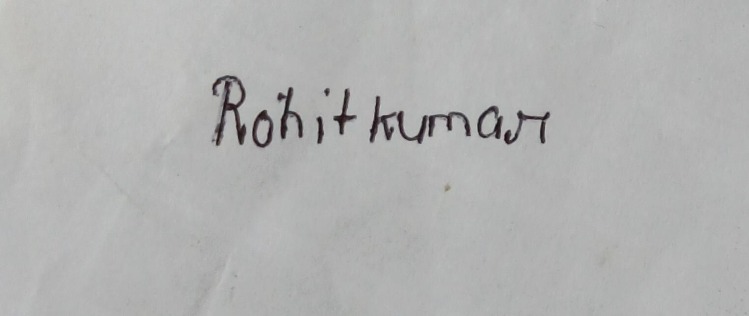 Rohit kumar